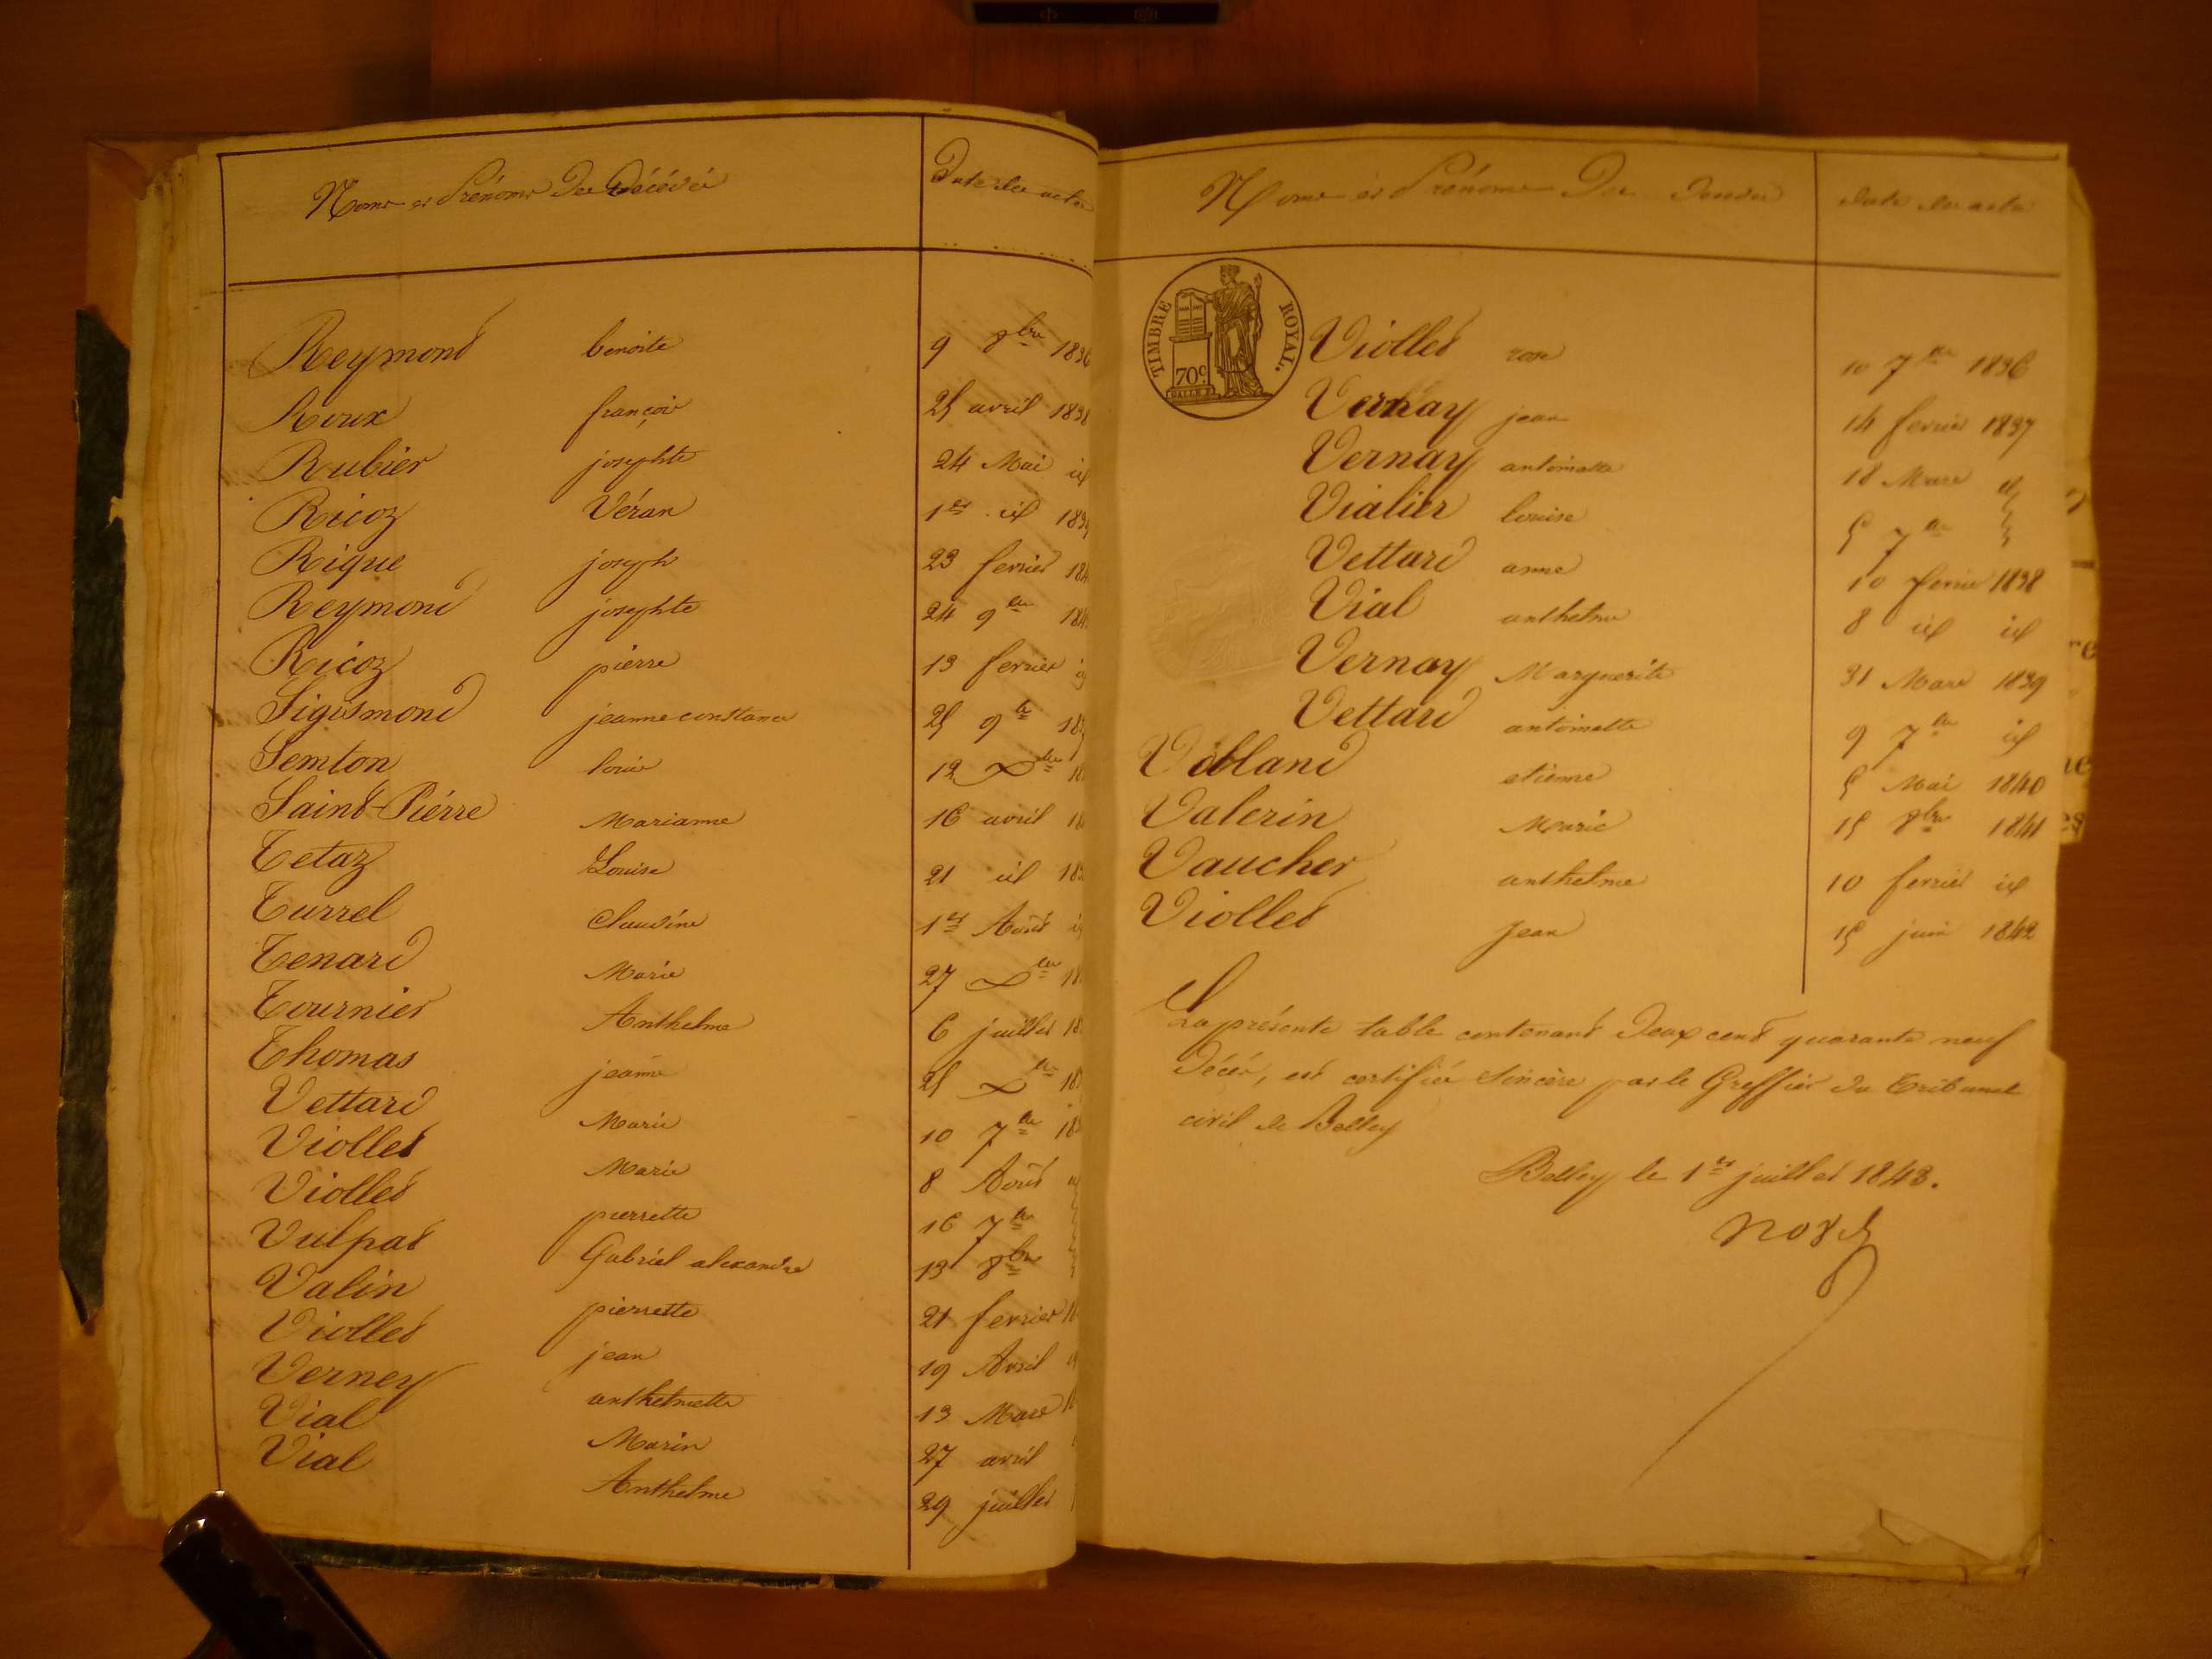 Noms et Prénoms des Décédés Date des actes
Reymond benoite 9 8bre 1836
Roux françois 25 avril 1838
Rubier josephte 24 Mai id
Ricoz Véran 1er id 1839
Rique joseph 23 fevrier 184
Reymond josephte 24 9bre 184
Ricoz pierre 13 fevrier
Sigismond jeanne constance 25 9bre 183
Semton louis 12 Xbre 18
Saint-Piérre Marianne 16 avril 18
Tetaz Louise 21 id 183
Turrel Claudine 1er Août
Tenard Marie 27 Xbre 18
Tournier Anthelme 6 juillet 18
Thomas jeanne 25 Xbre 18
Vettard Marie 10 7bre 18
Viollet Marie 8 Août
Viollet pierrette 16 7bre
Vulpat Gabriel alexandre 13 8bre
Valin pierrette 21 fevrier
Viollet jean 19 Avril
Verney anthelmette 13 Mars
Vial Marin 27 avril
Vial Anthelme 29 juillet
Noms et Prénoms des date des actes
TIMBRE ROYAL.
70c
Viollet rose 10 7bre 1836
Vernay jean 14 fevrier 1837
Vernay antoinette 18 Mars id
Vialier louise 5 7bre
Vettard anne 10 fevrier 1838
Vial anthelme 8 id id
Vernay Marguerite 31 Mars 1839
Vettard antoinette 9 7bre id
Volland etienne 5 Mai 1840
Valerin Marie 15 8bre 1841
Vaucher anthelme 10 fevrier id
Viollet Jean 15 juin 1842
La présente table contenant deux cent quarante neuf
Décés, est certifiée sincère par le Greffier du Tribunal
civil de Belley
Belley le 1er juillet 1843.